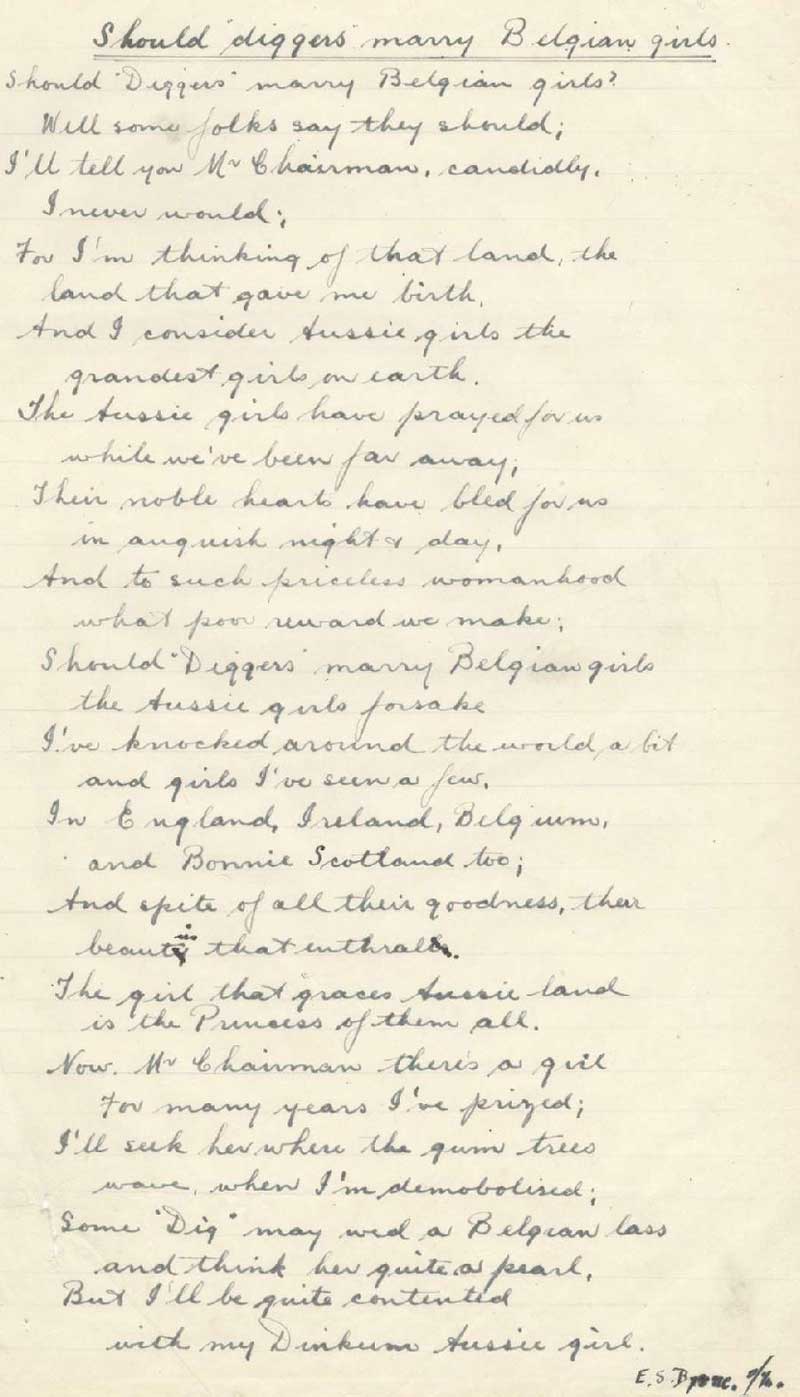 Should "diggers" marry Belgian girls.
Should "Diggers" marry Belgian girls?
Well some folks say they should;
I'll tell you Mr Chairman, candidly,
I never would;
For I'm thinking of that land, the
land that gave me birth,
And I consider Aussie girls the
grandest girls on earth.
The Aussie girls have prayed for us
while we've been far away;
Their noble hearts have bled for us
in anguish night & day,
And to such priceless womanhood
what poor reward we make;
Should "Diggers" marry Belgian girls
the Aussie girls forsake
I've knocked around the world a bit
and girls I've seen a few,
In England, Ireland, Belgium,
and Bonnie Scotland too;
And spite of all their goodness, their
beauties that enthrall.
The girl that graces Aussie land
is the Princess of them all.
Now. Mr Chairman there's a girl
For many years I've prized;
I'll seek her where the gum trees
wave, when I'm demobolised;
Some "Dig" may wed a Belgian lass
and think her quite a pearl,
But I'll be quite contented
with my Dinkum Aussie girl.
E. S. Byrne.